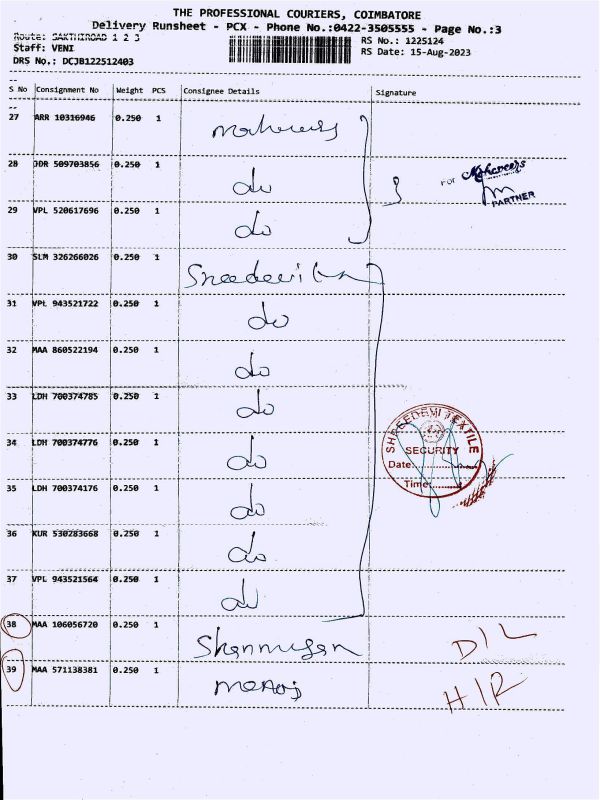 THE PROFESSIONAL COURIERS, COIMBATORE
Delivery Runsheet - PCX - Phone No.:0422-3505555 - Page No.:3
Route: SAKTHIROAD 1 2 3
Staff: VENI
DRS No.: DCJB122512403
RS No.: 1225124
RS Date: 15-Aug-2023
S No Consignment No Weight PCS Consignee Details Signature
27 ARR 10316946 0.250 1
28 JDR 509703856 0.250 1 do
FOR
PARTNER
29 VPL 520617696 0.250 1 do
30 SLM 326266026 0.250 1 Sreedevi
31 VPL 943521722 0.250 1 do
32 MAA 860522194 0.250 1 do
33 LDH 700374785 0.250 1 do
34 LDH 700374776 0.250 1 do
SHREEDEMI TEXTILE
SECURITY
Date:
Time:
35 LDH 700374176 0.250 1 do
36 KUR 530283668 0.250 1 do
37 VPL 943521564 0.250 1 do
38 MAA 106056720 0.250 1 Shanmugan D/L
39 MAA 571138381 0.250 1 manoj H/R